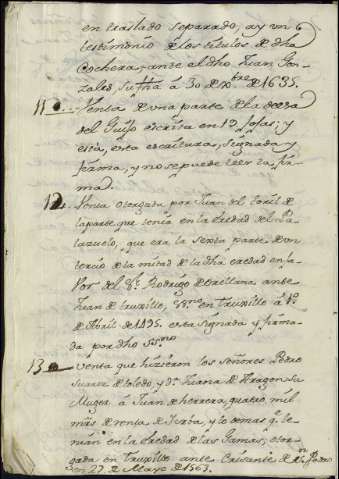 en traslado separado, ay un
testimonio de los titulos de dha
Cochera; ante el dho Juan Gon-
zales, su fha á 30 de de 1635.
11. Venta de una parte de la deesa
del Guijo escrita en 19 fojas; y
está, esta escritura, signada y
firmada, y no se puede leer la fir-
ma.
12. Venta otorgada por Juan del
la parte que tenia en la eredad del Pa-
lazuelo, que era la sexta parte de un
tercio de la mitad de la dha eredad en fa-
vor del Sr. Rodrigo de Orellana, ante
Juan de truxillo, essno en truxillo á 1º
de Abril de 1495. esta signada y firma-
da por dho essno
13. Venta que hizieron los señores Pedro
Suarez de toledo, y Dª Juana de Aragon, su
Muger á Juan de herrera, quatro mil
mrs de renta de Yerba, y lo demas q. te-
nian en la eredad de las Gamas; otor-
gada en truxillo ante de Sn Pedro
en 27 de Mayo de 1563.